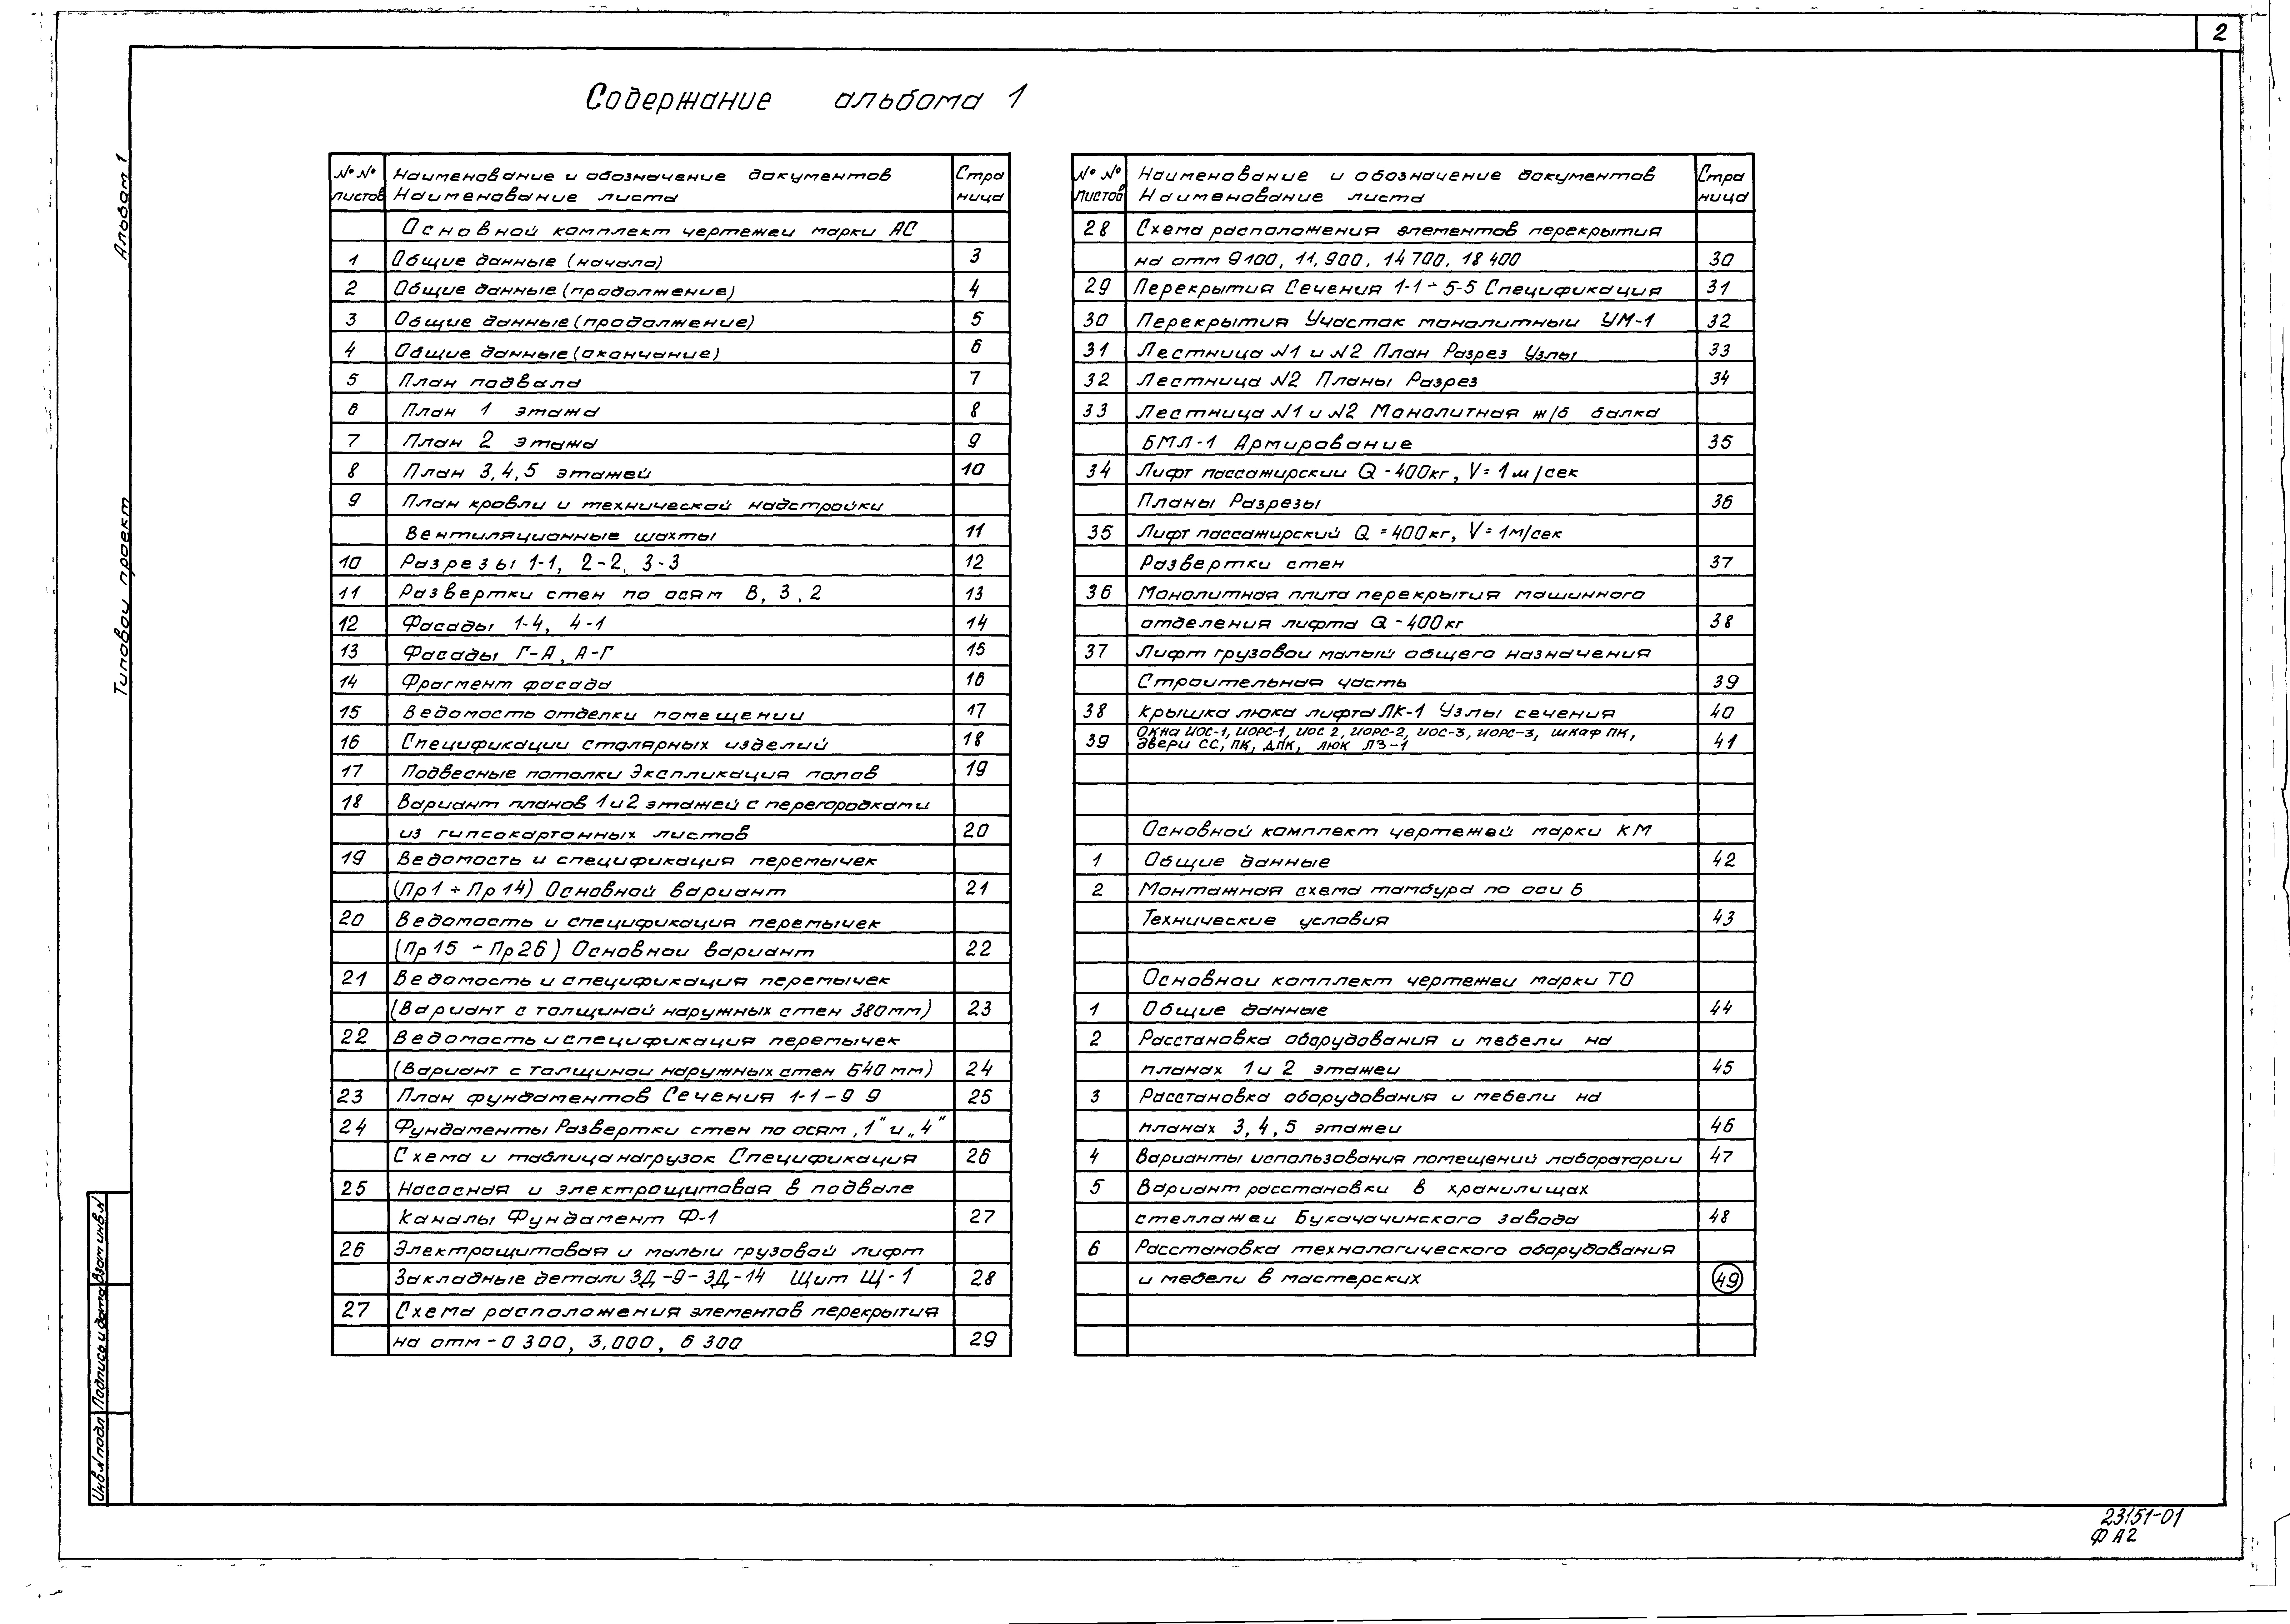 2
Содержание альбома 1
Альбом 1
Типовой проект
№ № Наименование и обозначение документов Стра
листов Наименование листа ница
Основной комплект чертежеи марки АС
1 Общие данные (начало) 3
2 Общие данные (продолжение) 4
3 Общие данные (продолжение) 5
4 Общие данные (окончание) 6
5 План подвала 7
6 План 1 этажа 8
7 План 2 этажа 9
8 План 3,4,5 этажей 10
9 План кровли и технической надстройки
Вентиляционные шахты 11
10 Разрезы 1-1, 2-2, 3-3 12
11 Развертки стен по осям В, 3, 2 13
12 Фасады 1-4, 4-1 14
13 Фасады Г-А, А-Г 15
14 Фрагмент фасада 16
15 Ведомость отделки помещении 17
16 Спецификации столярных изделий 18
17 Подвесные потолки Экспликация полов 19
18 Вариант планов 1 и 2 этажей с перегородками
из гипсокартонных листов 20
19 Ведомость и спецификация перемычек
(Пр1 ÷ Пр14) Основной вариант 21
20 Ведомость и спецификация перемычек
(Пр15 ÷ Пр26) Основнои вариант 22
21 Ведомость и спецификация перемычек
(Вариант с толщиной наружных стен 380мм) 23
22 Ведомость и спецификация перемычек
(Вариант с толщинои наружных стен 640мм) 24
23 План фундаментов Сечения 1-1 – 9 9 25
24 Фундаменты Развертки стен по осям „1" и „4"
Схема и таблица нагрузок Спецификация 26
25 Насосная и электрощитовая в подвале
Каналы Фундамент Ф-1 27
26 Электрощитовая и малыи грузовой лифт
Закладные детали ЗД-9 - ЗД-14 Щит Щ-1 28
27 Схема расположения элементов перекрытия
на отм -0 300, 3.000, 6 300 29
№ № Наименование и обозначение документов Стра
листов Наименование листа ница
28 Схема расположения элементов перекрытия
на отм 9100, 11,900, 14 700, 18 400 30
29 Перекрытия Сечения 1-1 ÷ 5-5 Спецификация 31
30 Перекрытия Участок монолитный УМ-1 32
31 Лестница N1 и N2 План Разрез Узлы 33
32 Лестница N2 Планы Разрез 34
33 Лестница N1 и N2 Монолитная ж/б балка
БМЛ-1 Армирование 35
34 Лифт пассажирскии Q - 400кг, V = 1м/сек
Планы Разрезы 36
35 Лифт пассажирский Q = 400кг, V = 1м/сек
Развертки стен 37
36 Монолитная плита перекрытия машинного
отделения лифта Q - 400кг 38
37 Лифт грузовои малый общего назначения
Строительная часть 39
38 Крышка люка лифта ЛК-1 Узлы сечения 40
39 Окна ИОС-1, ИОРС-1, ИОС 2, ИОРС-2, ИОС-3, ИОРС-3, шкаф ПК,
двери СС, ПК, ДПК, люк ЛЗ-1 41
Основной комплект чертежей марки КМ
1 Общие данные 42
2 Монтажная схема тамбура по оси Б
Технические условия 43
Основнои комплект чертежеи марки ТО
1 Общие данные 44
2 Расстановка оборудования и мебели на
планах 1 и 2 этажеи 45
3 Расстановка оборудования и мебели на
планах 3,4,5 этажеи 46
4 Варианты использования помещений лаборатории 47
5 Вариант расстановки в хранилищах
стеллажеи Букачачинского завода 48
6 Расстановка технологического оборудования
и мебели в мастерских 49
Инв.N подл Подпись и дата Взам инв.N
23151-01
Ф А2